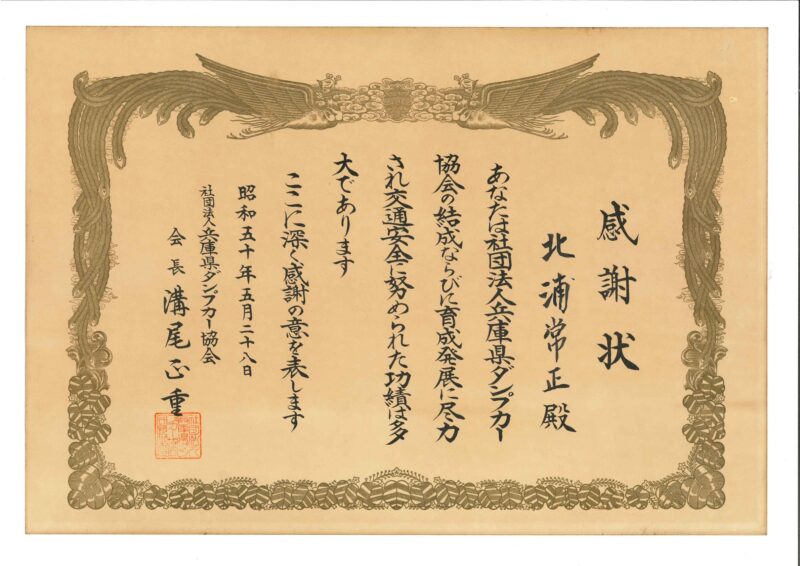 感謝状
北浦常正殿
あなたは社団法人兵庫県ダンプカー
協会の結成ならびに育成発展に尽力
され交通安全に努められた功績は多
大であります
ここに深く感謝の意を表します
昭和五十年五月二十八日
社団法人兵庫県ダンプカー協会
会長 溝尾正重